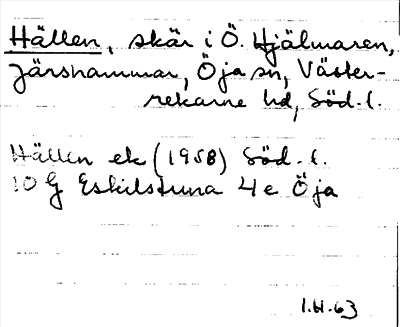 Hällen, skär i Ö. Hjälmaren,
Järsnammar, Öja sn, Väster-
rekarne hd, Söd. l.
Hällen ek (1958) Söd. l.
10 G Eskilstuna 4 e Öja
1.H.63